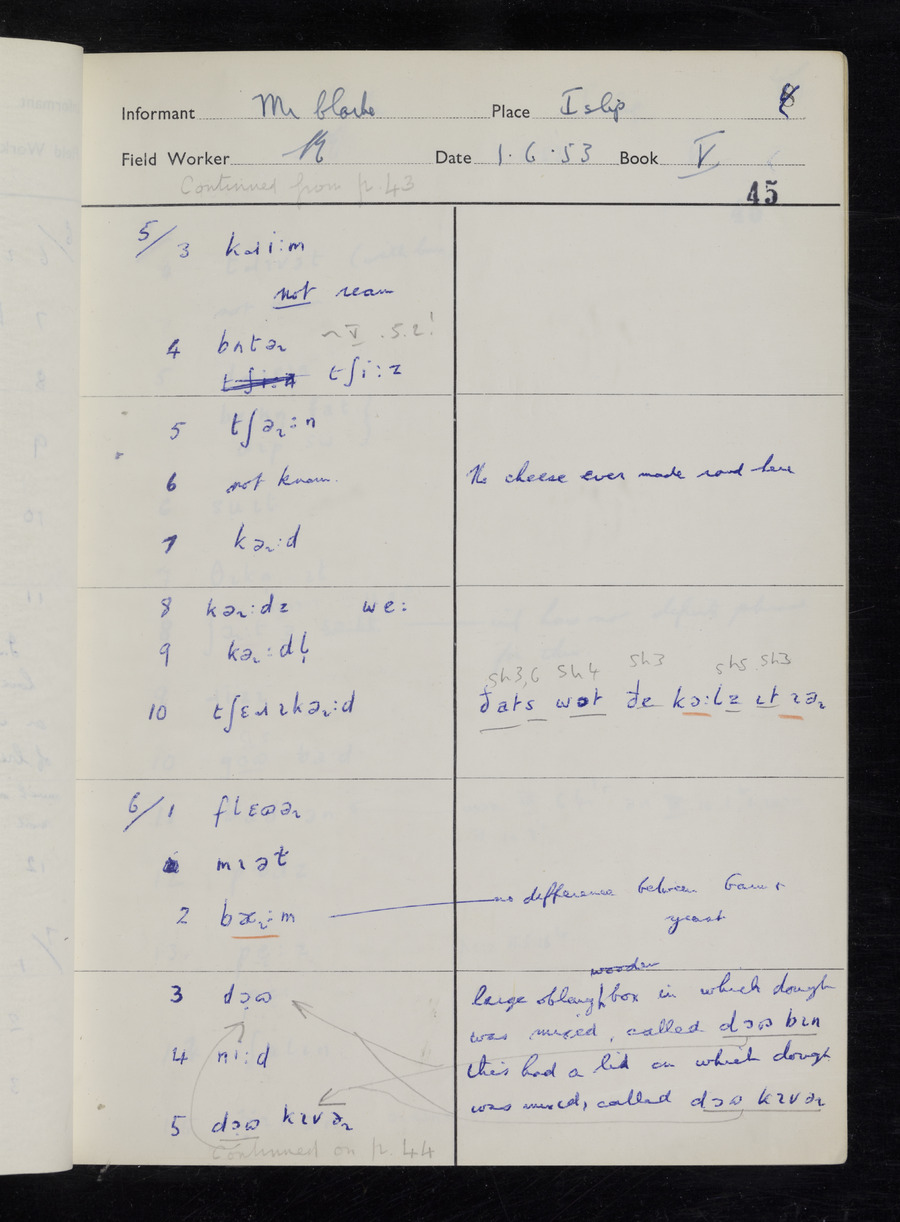 Informant Mr Place Islip
Field Worker Date 1.6.53 Book V
Continued from p. 43
45
5/3 kɹiːm
not ream
4 bʌtəɹ ~ V .5.2!
tʃiːz
5 tʃəɹːn
6 not known. No cheese ever made round here
7 kəɹːd
8 kəɹːdz we:
9 kəɹːdḷ
10 tʃɛɹɪkəɹːd
sh3,6 sh4 sh3 sh5 sh3
ðats wɒt ðe kɔːlz ɪt ɪəɹ
6/1 flɛʊəɹ
mɪət
2 bæɹːm no difference between barm &
yeast
wooden
3 dɔʊ large oblong box in which dough
was mixed, called dɔʊ bɪn
4 niːd this had a lid on which dough
was mixed, called dɔʊ kɪvəɹ
5 dɔʊ kɪvəɹ
Continued on p. 44